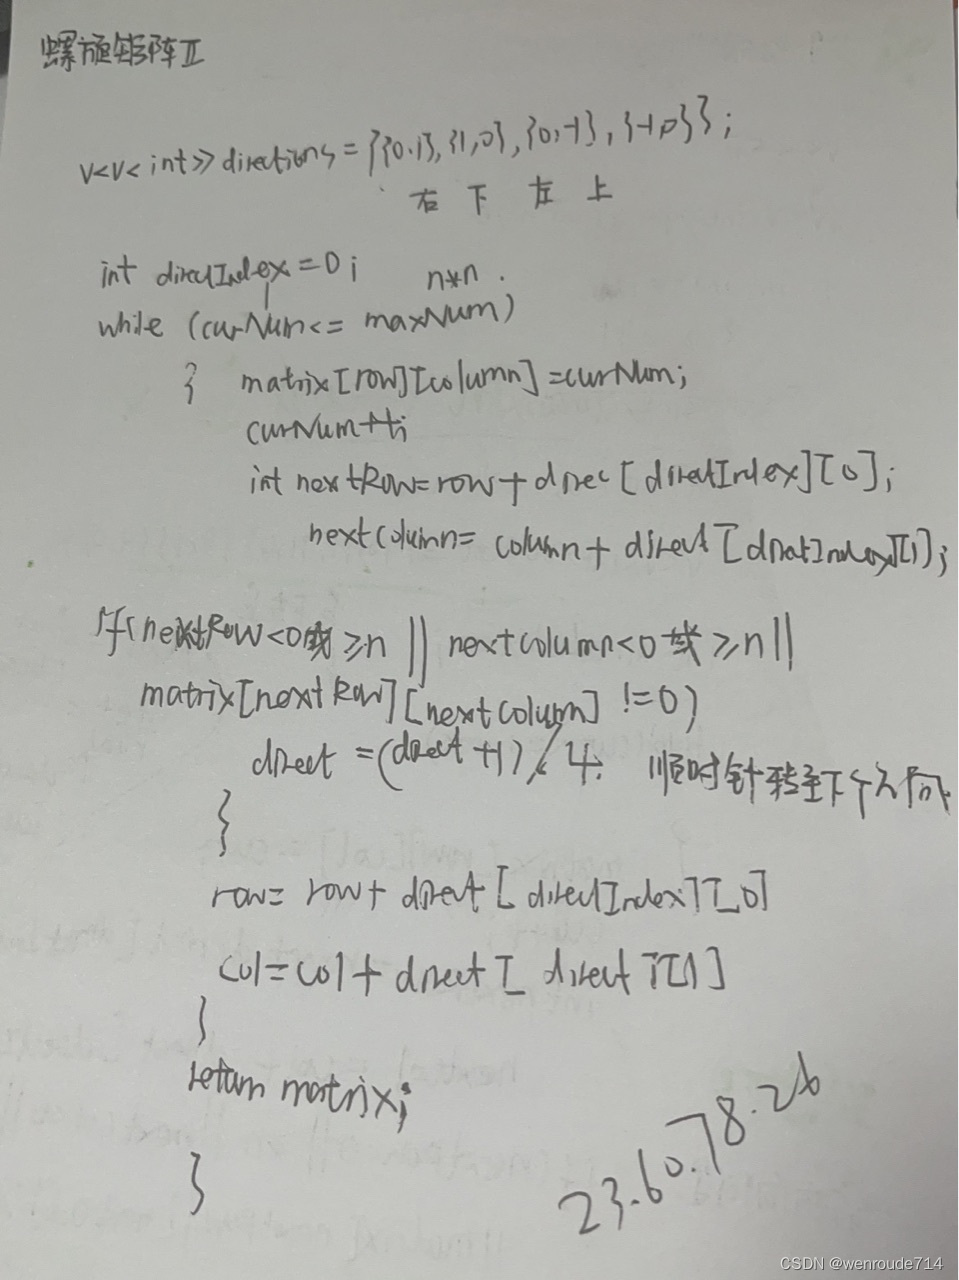 螺旋矩阵II
v<v<int>> directions={{0,1},{1,0},{0,-1},{-1,0}};
右 下 左 上
int directIndex=0;
n*n.
while (curNum<= maxNum)
{ matrix[row][column]=curNum;
curNum++;
int nextRow=row+direc[directIndex][0];
nextcolumn= column+direct[directIndex][1];
if(nextRow<0或≥n || nextcolumn<0或≥n||
matrix[nextRow][nextcolumn] !=0)
direct =(direct+1)%4. 顺时针转至下个方向
}
row= row+direct[directIndex][0]
col=col+direct[direct][1]
}
return matrix;
}
23.60.78.26
CSDN @wenroude714